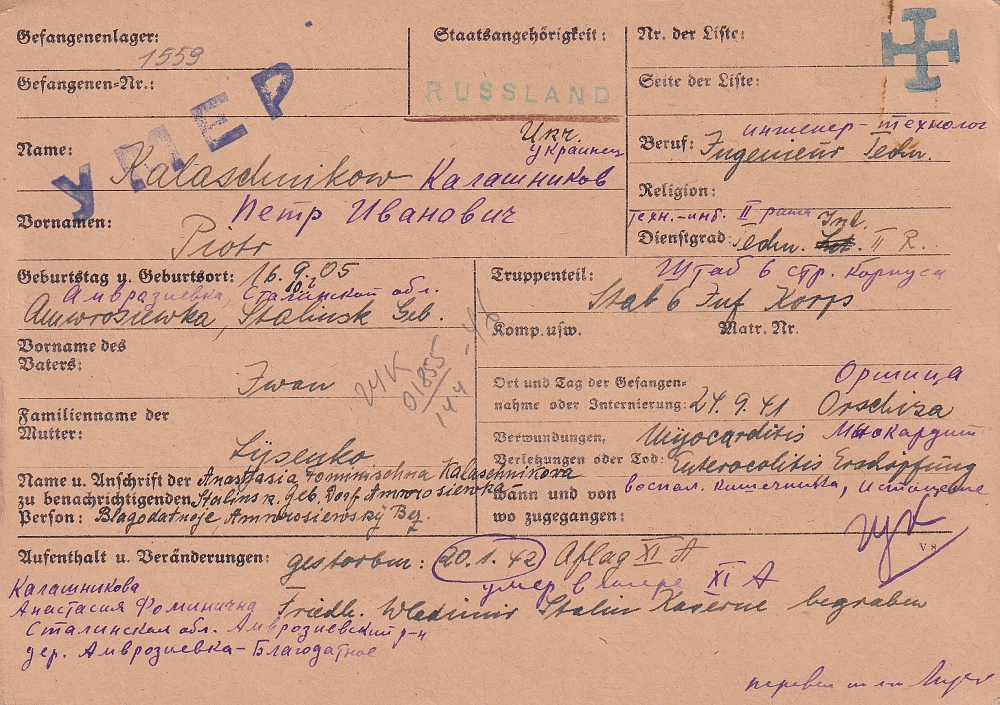 Gefangenenlager:
1559
Gefangenen-Nr.:
Staatsangehörigkeit:
RUSSLAND
Nr. der Liste:
Seite der Liste:
УМЕР
Укр.
украинец
Name: Kalaschnikow Калашников
Петр Иванович
Vornamen: Piotr
инженер-технолог
Beruf: Ingenieur Techn.
Religion:
Техн.-инт. II ранга Int.
Dienstgrad: Techn. II R.
Geburtstag u. Geburtsort: 16.9.05
10.2
Амврозиевка, Сталинской обл.
Amwrosiewka, Stalinsk Geb.
Штаб 6 стр. корпуса
Truppenteil: Stab 6 Inf Korps
Komp. usw. Matr. Nr.
Vorname des
Vaters: Iwan
01855
Оршица
Ort und Tag der Gefangen-
nahme oder Internierung: 24.9.41 Orschiza
Familienname der
Mutter: Lysenko
Verwundungen, Myocarditis Миокардит
Verletzungen oder Tod: Enterocolitis Erschöpfung
воспал. кишечника, истощение
Name u. Anschrift der Anastasia Fominischna Kalaschnikowa
zu benachrichtigenden Stalinsk. Geb. Dorf Amwrosiewka
Person: Blagodatnoje, Amwrosiewskÿ Bez.
Wann und von
wo zugegangen:
V s
Aufenthalt u. Veränderungen: gestorben: 20.1.42 Aflag XI A
умер в лагере XI A
Friedh. Wladimir Stalin Kaserne begraben
Калашникова
Анастасия Фоминична
Сталинская обл. Амврозиевский р-н
дер. Амврозиевка-Благодатное